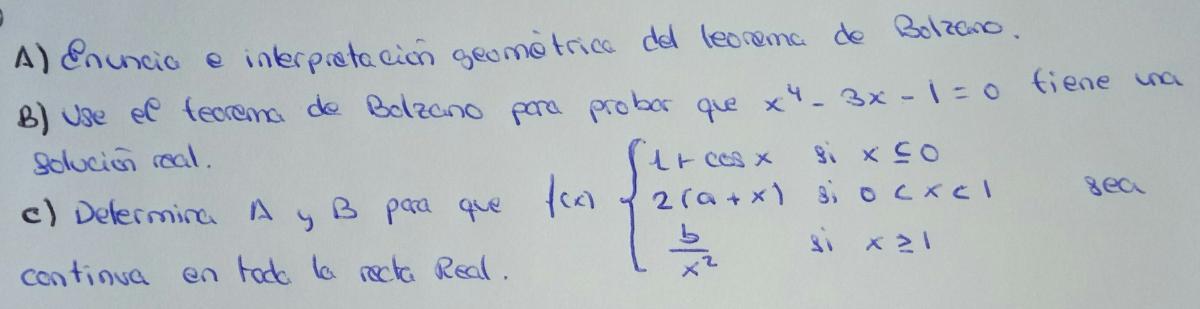 A) Enuncia e interpretación geométrica del teorema de Bolzano.
B) Use el teorema de Bolzano para probar que x⁴ - 3x - 1 = 0 tiene una
solución real.
c) Determina A y B para que f(x) { 1 + cos x si x ≤ 0
2(a + x) si 0 < x < 1 sea
b/x² si x ≥ 1
continua en toda la recta Real.